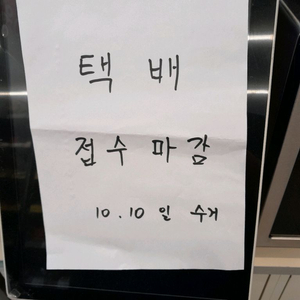 택 배
접수 마감
10.10 일 수거